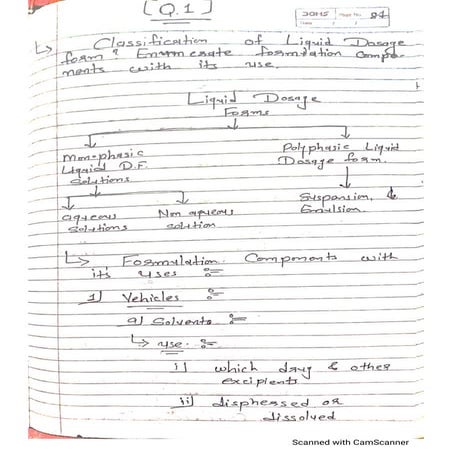 [Q.1]
DOMS Page No. 84
Date / /
Classification of Liquid Dosage
form? Enumerate formlation compo-
nents with its use.
Liquid Dosage
Forms
Mon-phasic
Liquid D.F.
Solutions
Polyphasic Liquid
Dosage form.
aqueous
Solutions
Non aqueous
solution
Suspension, &
Emulsion.
Formulation Components with
its uses :-
1) Vehicles :-
a) Solvents :-
use :-
i) which drug & other
excipients
ii) disphersed or
dissolved
Scanned with CamScanner